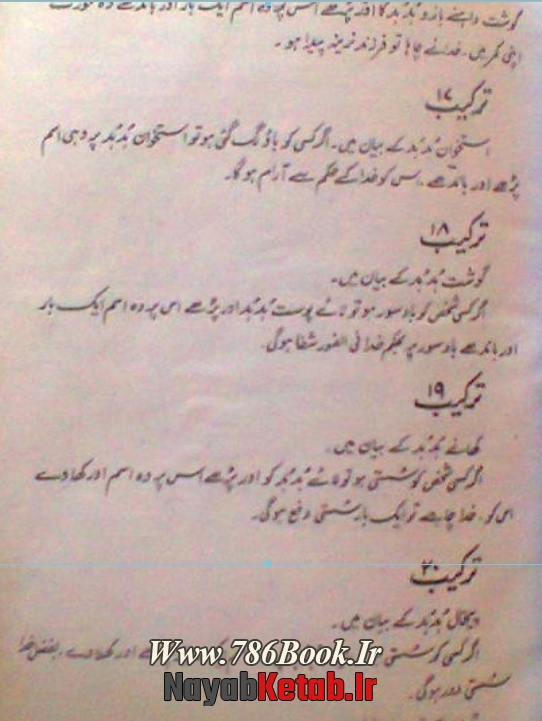 گوشت داہنے بازو ہُدہُد کا اور پڑھے اس پر وہ اسم ایک بار اور باندھے وہ عورت
اپنی کمر میں۔ خدا نے چاہا تو فرزند نرینہ پیدا ہو۔
ترکیب ۱۷
استخوان ہُدہُد کے بیان میں۔ اگر کسی کو باؤ لگ گئی ہو تو استخوان ہُدہُد پر وہی اسم
پڑھے اور باندھے۔ اس کو خدا کے حکم سے آرام ہوگا۔
ترکیب ۱۸
گوشت ہُدہُد کے بیان میں۔
اگر کسی شخص کو بادسور ہو تو لائے پوست ہُدہُد اور پڑھے اس پر وہ اسم ایک بار
اور باندھے بادسور پر بحکم خدا فی الفور شفا ہوگی۔
ترکیب ۱۹
کھانے ہُدہُد کے بیان میں۔
اگر کسی شخص کو سُستی ہو تو لائے ہُدہُد کو اور پڑھے اس پر وہ اسم اور کھا دے
اس کو۔ خدا چاہے تو ایک بار سُستی دفع ہوگی۔
ترکیب ۲۰
ہُدہُد کے بیان میں۔
اگر کسی کو سُستی اور کھا دے۔ بفضل خدا
سُستی دور ہوگی۔
Www.786Book.Ir
NayabKetab.Ir